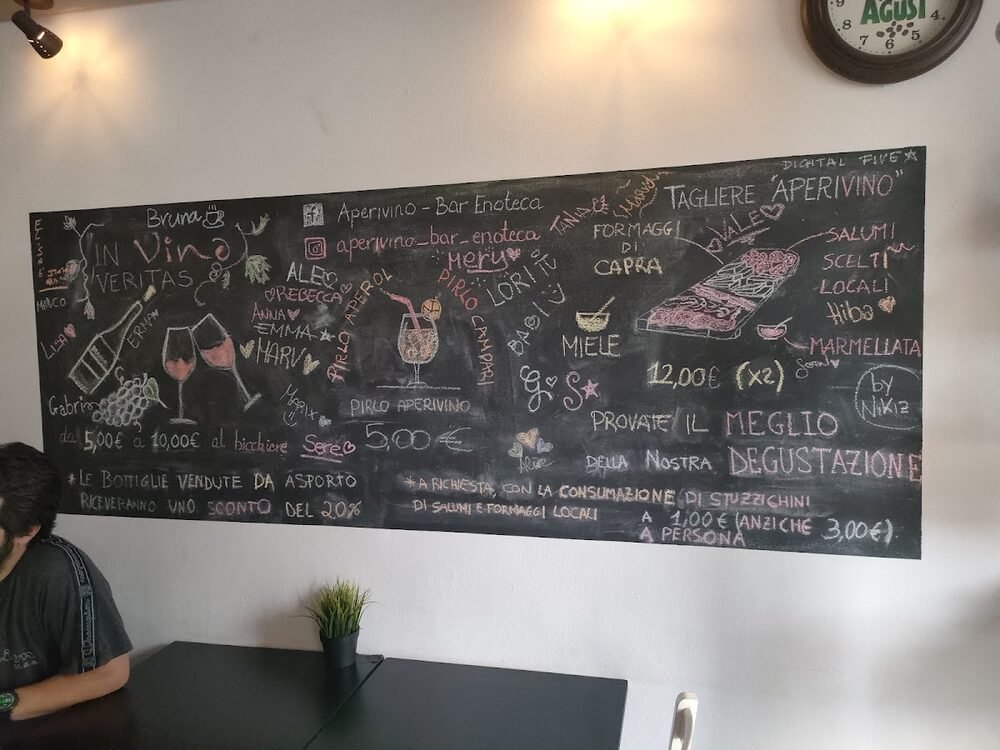 AGUSI
9
8
7
6
5
4
DIGITAL FIVE
Bruna
IN Vino
VERITAS
MIRCO
LISA
ERMA
Gabri
da 5,00€ a 10,00€ al bicchiere
* LE BOTTIGLIE VENDUTE DA ASPORTO
RICEVERANNO UNO SCONTO DEL 20%
ALE
REBECCA
ANNA
EMMA
MARV
Sere
Aperivino - Bar Enoteca
aperivino_bar_enoteca
Mery
PIRLO APEROL
PIRLO CAMPARI
PIRLO APERIVINO
5,00 €
LORI
BABI
TANIA
G S
TAGLIERE "APERIVINO"
VALE
FORMAGGI
DI
CAPRA
MIELE
SALUMI
SCELTI
LOCALI
Hiba
MARMELLATA
12,00€ (x2)
by
NiKiz
PROVATE IL MEGLIO
DELLA NOSTRA DEGUSTAZIONE
* A RICHIESTA, CON LA CONSUMAZIONE DI STUZZICHINI
DI SALUMI E FORMAGGI LOCALI
A 1,00€ (ANZICHE 3,00€)
A PERSONA